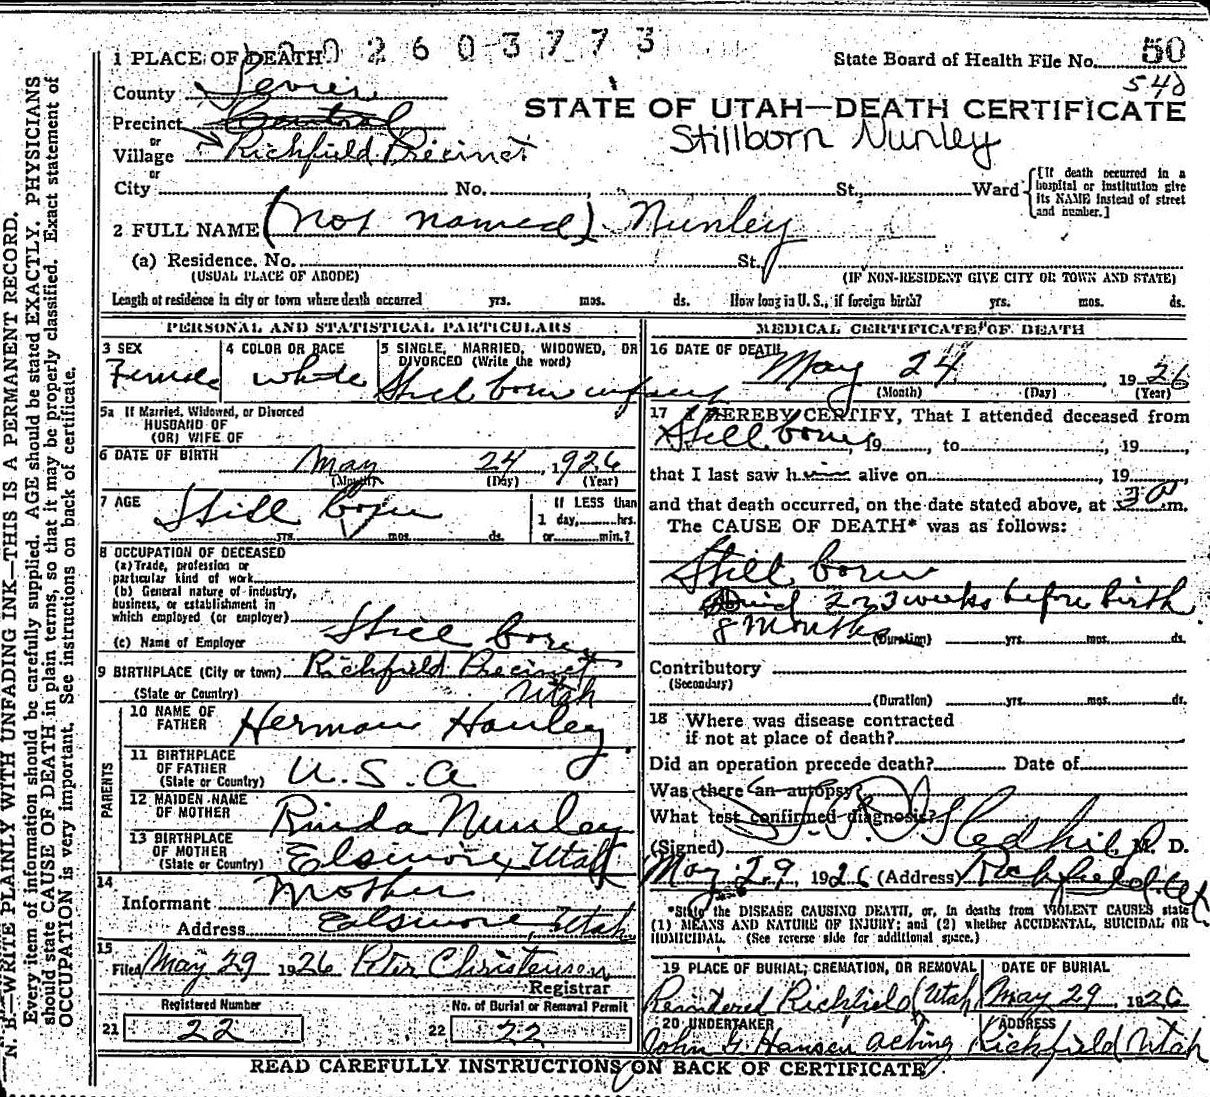 2603773
1 PLACE OF DEATH
State Board of Health File No. 50
548
County Sevier
STATE OF UTAH—DEATH CERTIFICATE
Precinct Central
Stillborn Nunley
or
Village Richfield Precinct
or
City No. St. Ward
[If death occurred in a hospital or institution give its NAME instead of street and number.]
2 FULL NAME (not named) Nunley
(a) Residence. No. St.
(USUAL PLACE OF ABODE) (IF NON-RESIDENT GIVE CITY OR TOWN AND STATE)
Length of residence in city or town where death occurred yrs. mos. ds. How long in U. S., if foreign birth? yrs. mos. ds.
PERSONAL AND STATISTICAL PARTICULARS
3 SEX
Female
4 COLOR OR RACE
white
5 SINGLE, MARRIED, WIDOWED, OR DIVORCED (Write the word)
Still born infancy
5a If Married, Widowed, or Divorced
HUSBAND OF
(OR) WIFE OF
6 DATE OF BIRTH May 24, 1926
(Month) (Day) (Year)
7 AGE Still born
yrs. mos. ds.
If LESS than
1 day, hrs.
or min.?
8 OCCUPATION OF DECEASED
(a) Trade, profession or
particular kind of work
(b) General nature of industry,
business, or establishment in
which employed (or employer)
Still born
(c) Name of Employer
9 BIRTHPLACE (City or town) Richfield Precinct
(State or Country) Utah
PARENTS
10 NAME OF FATHER Herman Hanley
11 BIRTHPLACE OF FATHER
(State or Country) U. S. A
12 MAIDEN NAME OF MOTHER Rinda Nunley
13 BIRTHPLACE OF MOTHER
(State or Country) Elsinore, Utah
14
Informant Mother
Address Elsinore, Utah
15
Filed May 29 1926 Peter Christensen
Registrar
Registered Number
21 22
No. of Burial or Removal Permit
22 22
MEDICAL CERTIFICATE OF DEATH
16 DATE OF DEATH May 24, 1926
(Month) (Day) (Year)
17 I HEREBY CERTIFY, That I attended deceased from
Still born, 19, to, 19
that I last saw h alive on, 19
and that death occurred, on the date stated above, at 3 a m.
The CAUSE OF DEATH* was as follows:
Still born
Died 2 or 3 weeks before birth
8 Months
(Duration) yrs. mos. ds.
Contributory
(Secondary)
(Duration) yrs. mos. ds.
18 Where was disease contracted
if not at place of death?
Did an operation precede death? Date of
Was there an autopsy?
What test confirmed diagnosis?
(Signed) Ledhill, M. D.
May 29, 1926 (Address) Richfield. Ut.
*State the DISEASE CAUSING DEATH, or, in deaths from VIOLENT CAUSES state
(1) MEANS AND NATURE OF INJURY; and (2) whether ACCIDENTAL, SUICIDAL OR
HOMICIDAL. (See reverse side for additional space.)
19 PLACE OF BURIAL, CREMATION, OR REMOVAL
Richfield, Utah
DATE OF BURIAL
May 29, 1926
20 UNDERTAKER
John G. Hansen acting
ADDRESS
Richfield, Utah
READ CAREFULLY INSTRUCTIONS ON BACK OF CERTIFICATE
N. B.—WRITE PLAINLY WITH UNFADING INK—THIS IS A PERMANENT RECORD.
Every item of information should be carefully supplied. AGE should be stated EXACTLY. PHYSICIANS
should state CAUSE OF DEATH in plain terms, so that it may be properly classified. Exact statement of
OCCUPATION is very important. See instructions on back of certificate.